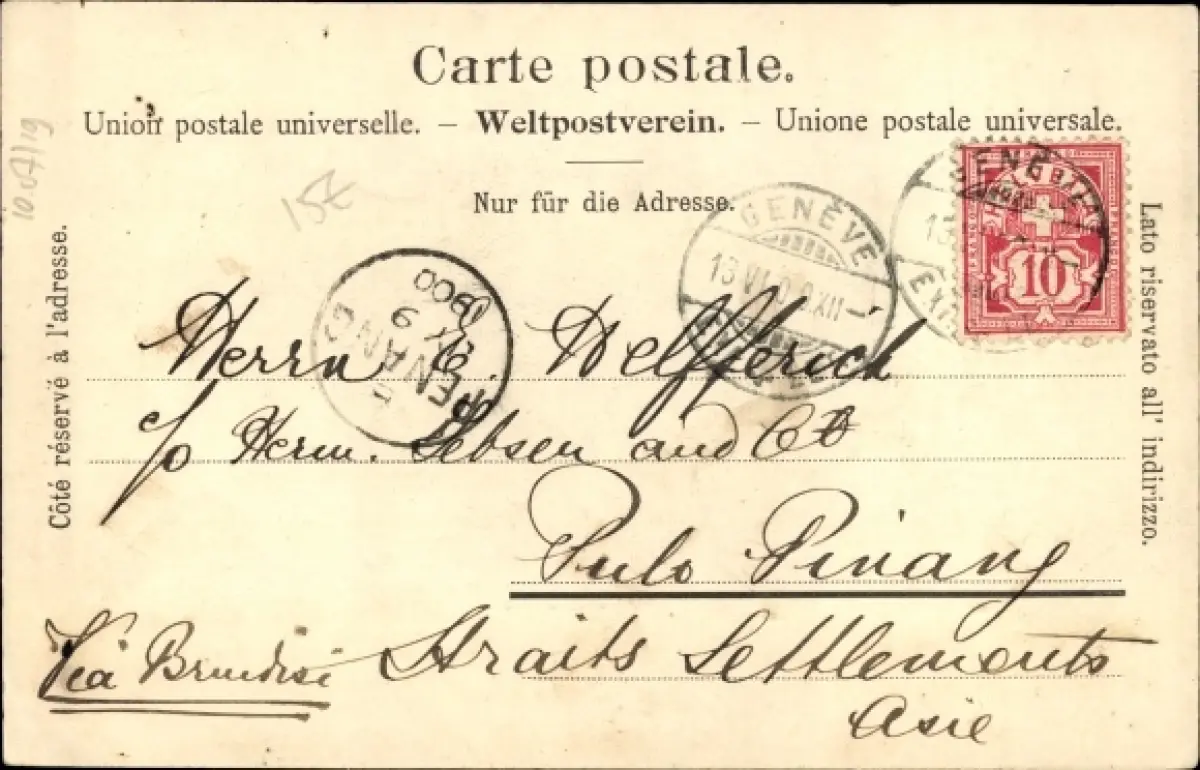 Carte postale.
Union postale universelle. – Weltpostverein. – Unione postale universale.
Nur für die Adresse.
Côté réservé à l'adresse.
Lato riservato all' indirizzo.
15Z
GENÈVE
13 VI 00 XII
EXP
FRANCO
10
1900
PENANG
Herrn E. Helfferich
c/o Herm. Jebsen and Co
Pulo Pinang
Via Brindisi
Straits Settlements
Asie